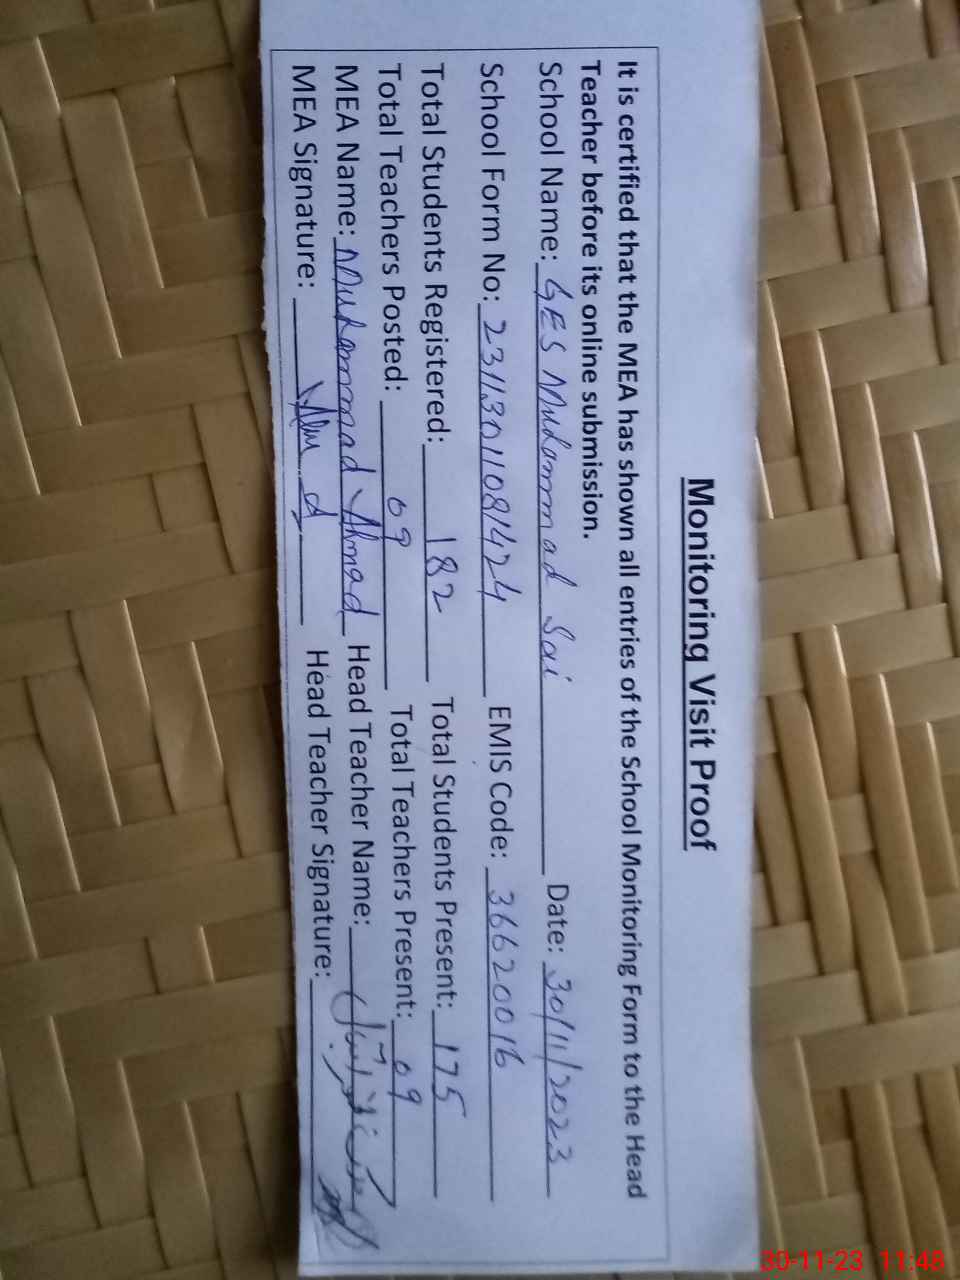 Monitoring Visit Proof
It is certified that the MEA has shown all entries of the School Monitoring Form to the Head
Teacher before its online submission.
School Name: GES Muhammad Sai Date: 30/11/2023
School Form No: 23113011081424 EMIS Code: 36620016
Total Students Registered: 182 Total Students Present: 175
Total Teachers Posted: 09 Total Teachers Present: 09
MEA Name: Muhammad Ahmad Head Teacher Name:
MEA Signature: Head Teacher Signature:
30-11-23 11:48